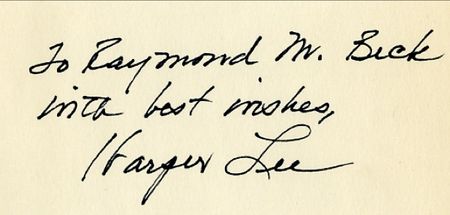 To Raymond M. Beck
with best wishes,
Harper Lee